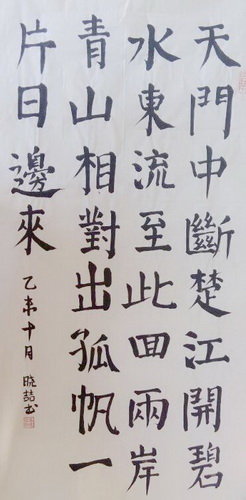 天門中斷楚江開碧
水東流至此回兩岸
青山相對出孤帆一
片日邊來
乙未十月 曉喆书